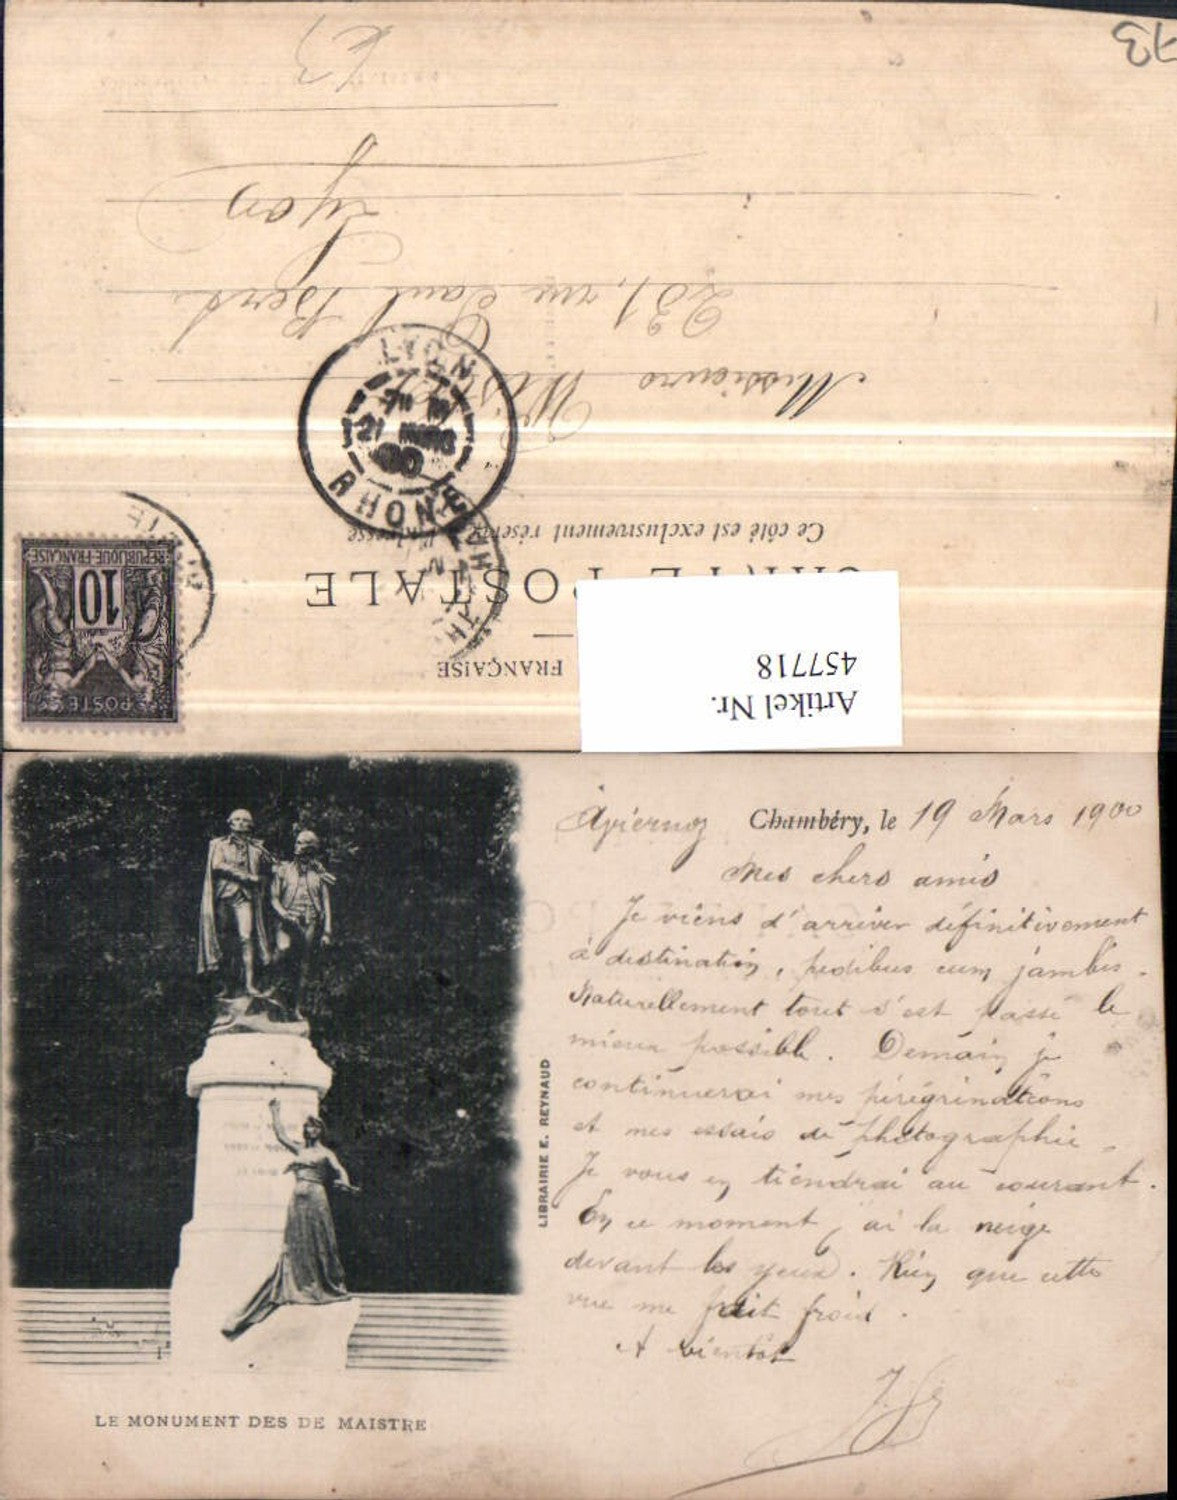 73
FRANÇAISE
CARTE POSTALE
Ce côté est exclusivement réservé à l'adresse
Messieurs
231, rue Paul Bert
Lyon
LYON
21 MARS
RHONE
REPUBLIQUE FRANÇAISE
10
POSTE
Artikel Nr.
457718
Chambéry, le 19 Mars 1900
Mes chers amis
Je viens d'arriver définitivement
à destination, pedibus cum jambis.
Naturellement tout s'est passé le
mieux possible. Demain je
continuerai mes pérégrinations
et mes essais de photographie.
Je vous en tiendrai au courant.
En ce moment j'ai la neige
devant les yeux. Rien que cette
vue me fait froid.
A bientôt
LIBRAIRIE E. REYNAUD
LE MONUMENT DES DE MAISTRE